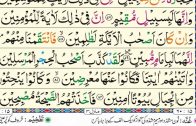 وَاِنَّهَا لَبِسَبِيْلٍ مُّقِيْمٍ اِنَّ فِيْ ذٰلِكَ لَاٰيَةً لِّلْمُؤْمِنِيْنَ
وَاِنْ كَانَ اَصْحٰبُ الْاَيْكَةِ لَظٰلِمِيْنَ فَانْتَقَمْنَا مِنْهُمْ
وَاِنَّهُمَا لَبِاِمَامٍ مُّبِيْنٍ وَلَقَدْ كَذَّبَ اَصْحٰبُ الْحِجْرِ الْمُرْسَلِيْنَ
وَاٰتَيْنٰهُمْ اٰيٰتِنَا فَكَانُوْا عَنْهَا مُعْرِضِيْنَ وَكَانُوْا يَنْحِتُوْنَ
مِنَ الْجِبَالِ بُيُوْتًا اٰمِنِيْنَ فَاَخَذَتْهُمُ الصَّيْحَةُ مُصْبِحِيْنَ